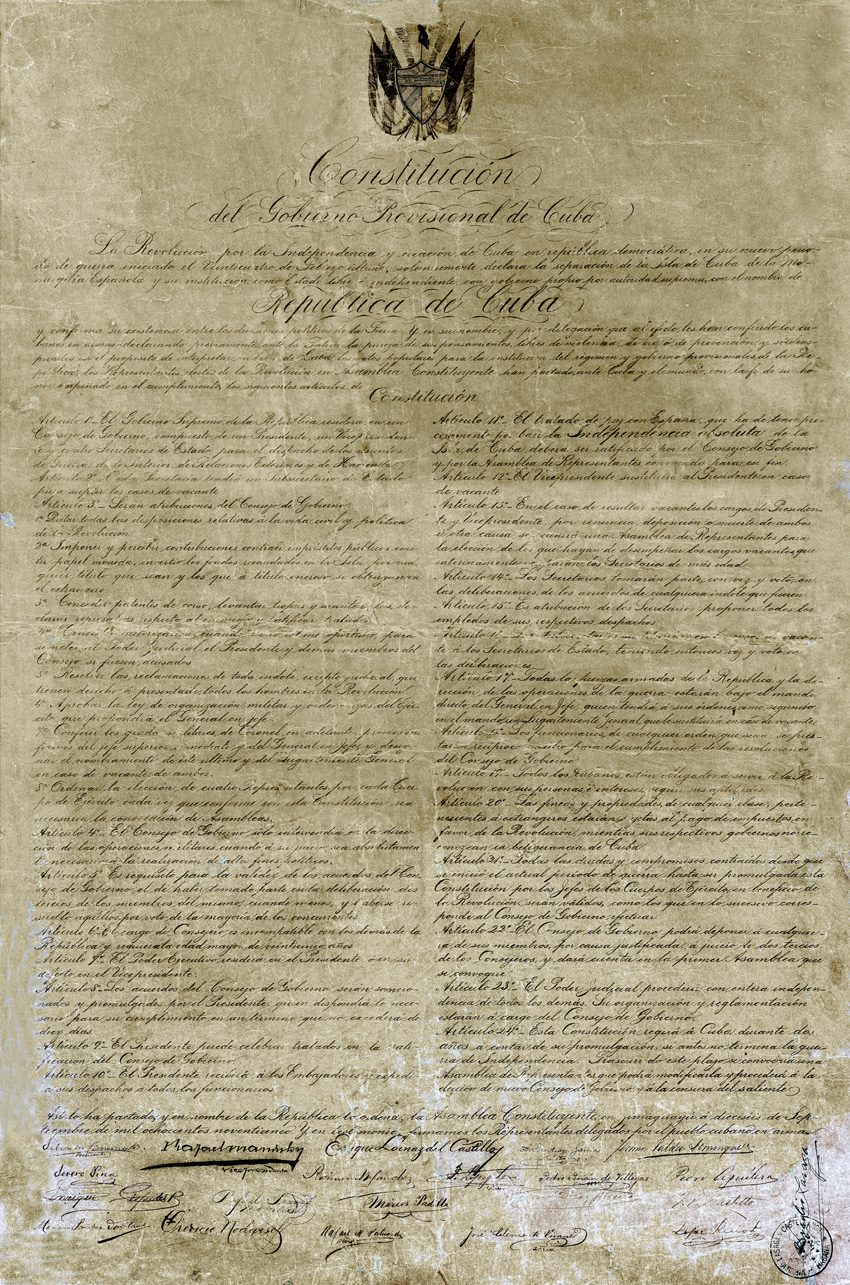 Constitución
del Gobierno Provisional de Cuba
La Revolución por la Independencia y creación de Cuba en república democrática, en su nuevo perio-
do de guerra iniciado el Veinticuatro de Febrero último, solemnemente declara la separación de la Isla de Cuba de la Mo-
narquía Española y su institución como Estado libre é independiente con gobierno propio por autoridad suprema, con el nombre de
República de Cuba
y confirma su existencia entre las divisiones políticas de la Tierra. Y en su nombre, y por delegación que al efecto les han conferido los cu-
banos en armas declarando previamente ante la Patria la pureza de sus pensamientos, libres de violencia, de ira ó de prevención, y sólo ins-
pirados en el propósito de interpretar en bien de Cuba los votos populares para la institución del régimen y gobierno provisionales de la Re-
pública, los Representantes electos de la Revolución en Asamblea Constituyente han pactado ante Cuba y el mundo, con la fe de su ho-
nor empeñado en el cumplimiento los siguientes artículos de
Constitución
Artículo 1º El Gobierno Supremo de la República residirá en un
Consejo de Gobierno, compuesto de un Presidente, un Vicepresiden-
te y cuatro Secretarios de Estado para el despacho de los asuntos
de Guerra, de lo Interior, de Relaciones Exteriores y de Hacienda
Artículo 2º Cada Secretario tendrá un Subsecretario de Estado
para suplir los casos de vacante
Artículo 3º Serán atribuciones del Consejo de Gobierno:
1ª Dictar todas las disposiciones relativas á la vida civil y política
de la Revolución
2ª Imponer y percibir contribuciones contraer empréstitos públicos emi-
tir papel moneda, invertir los fondos recaudados en la Isla por cual
quier título que sean y los que á título oneroso se obtengan en
el extranjero
3ª Conceder patentes de corso, levantar tropas y mantenerlas, de-
clarar represalias respecto al enemigo y ratificar tratados
4ª Conceder autorización cuando así lo estime oportuno, para
someter al Poder Judicial el Presidente y demás miembros del
Consejo si fuesen acusados
5ª Resolver las reclamaciones de toda índole, excepto judicial, que
tienen derecho á presentar todos los hombres en la Revolución
6ª Aprobar la ley de organización militar y ordenanzas del Ejér-
cito, que propondrá el General en Jefe
7ª Conferir los grados militares de Coronel en adelante, previos in-
formes del jefe superior inmediato y del General en Jefe y desig-
nar el nombramiento de este último y del Lugarteniente General
en caso de vacante de ambos
8ª Ordenar la elección de cuatro Representantes por cada Cuer-
po de Ejército cada vez que conforme con esta Constitución sea
necesaria la convocación de Asambleas
Artículo 4º El Consejo de Gobierno sólo intervendrá en la direc-
ción de las operaciones militares cuando á su juicio sea absolutamen-
te necesario á la realización de altos fines políticos.
Artículo 5º Es requisito para la validez de los acuerdos del Con-
sejo de Gobierno, el de haber tomado parte en la deliberación dos
tercios de los miembros del mismo, cuando menos, y haberse re-
suelto aquellos por voto de la mayoría de los concurrentes
Artículo 6º El cargo de Consejero es incompatible con los demás de la
República y requiere la edad mayor de veinticinco años
Artículo 7º El Poder Ejecutivo residirá en el Presidente ó en su
defecto en el Vicepresidente.
Artículo 8º Los acuerdos del Consejo de Gobierno serán sancio-
nados y promulgados por el Presidente, quien dispondrá lo nece-
sario para su cumplimiento en un término que no excederá de
diez días
Artículo 9º El Presidente puede celebrar tratados con la rati-
ficación del Consejo de Gobierno
Artículo 10º El Presidente recibirá á los Embajadores y expedi-
rá sus despachos á todos los funcionarios
Artículo 11º El tratado de paz con España, que ha de tener pre-
cisamente por base la Independencia absoluta de la
Isla de Cuba deberá ser ratificado por el Consejo de Gobierno
y por la Asamblea de Representantes convocada para ese fin.
Artículo 12º El Vicepresidente sustituirá al Presidente en caso
de vacante
Artículo 13º En el caso de resultar vacantes los cargos de Presiden-
te y Vicepresidente por renuncia, deposición ó muerte de ambos
ú otra causa se reunirá una Asamblea de Representantes para
la elección de los que hayan de desempeñar los cargos vacantes, que
interinamente ocuparán los Secretarios de más edad.
Artículo 14º Los Secretarios tomarán parte, con voz y voto, en
las deliberaciones de los acuerdos de cualquiera índole que fueren.
Artículo 15º Es atribución de los Secretarios proponer todos los
empleados de sus respectivos despachos
Artículo 16º Los Subsecretarios sustituirán en casos de vacan-
te á los Secretarios de Estado, teniendo entonces voz y voto en
las deliberaciones
Artículo 17º Todas las fuerzas armadas de la República y la di-
rección de las operaciones de la guerra estarán bajo el mando
directo del General en Jefe, quien tendrá á sus órdenes, como segundo
en el mando un Lugarteniente General que le sustituirá en caso de vacante
Artículo 18º Los funcionarios de cualquier orden que sean se pres-
tarán recíproco auxilio para el cumplimiento de las resoluciones
del Consejo de Gobierno
Artículo 19º Todos los cubanos están obligados á servir á la Re-
volución con sus personas é intereses, según sus aptitudes.
Artículo 20º Las fincas y propiedades de cualquier clase, perte-
necientes á extranjeros estarán sujetas al pago de impuestos en
favor de la Revolución, mientras sus respectivos gobiernos no re-
conozcan la beligerancia de Cuba
Artículo 21º Todas las deudas y compromisos contraídos desde que
se inició el actual período de guerra hasta ser promulgada esta
Constitución por los Jefes de los Cuerpos de Ejército, en beneficio de
la Revolución, serán válidos, como los que en lo sucesivo corres-
ponde al Consejo de Gobierno efectuar
Artículo 22º El Consejo de Gobierno podrá deponer á cualquie-
ra de sus miembros, por causa justificada, á juicio de dos tercios
de los Consejeros, y dará cuenta en la primer Asamblea que
se convoque
Artículo 23º El Poder judicial procederá con entera indepen-
dencia de todos los demás. Su organización y reglamentación
estarán á cargo del Consejo de Gobierno
Artículo 24º Esta Constitución regirá á Cuba durante dos
años á contar de su promulgación, si antes no termina la gue-
rra de Independencia. Transcurrido este plazo se convocará una
Asamblea de Representantes que podrá modificarla y procederá á la
elección de nuevo Consejo de Gobierno y á la censura del saliente
Así lo ha pactado, y en nombre de la República lo ordena, la Asamblea Constituyente, en Jimaguayú á dieciséis de Sep-
tiembre de mil ochocientos noventicinco. Y en testimonio firmamos los Representantes delegados por el pueblo cubano en armas
Rafael Manduley Enrique Loinaz del Castillo Fermín Valdés Domínguez
Vicepresidente
Severo Pina Pedro Piñán de Villegas Pedro Aguilera
Marcos Padilla
Orencio Nodarse